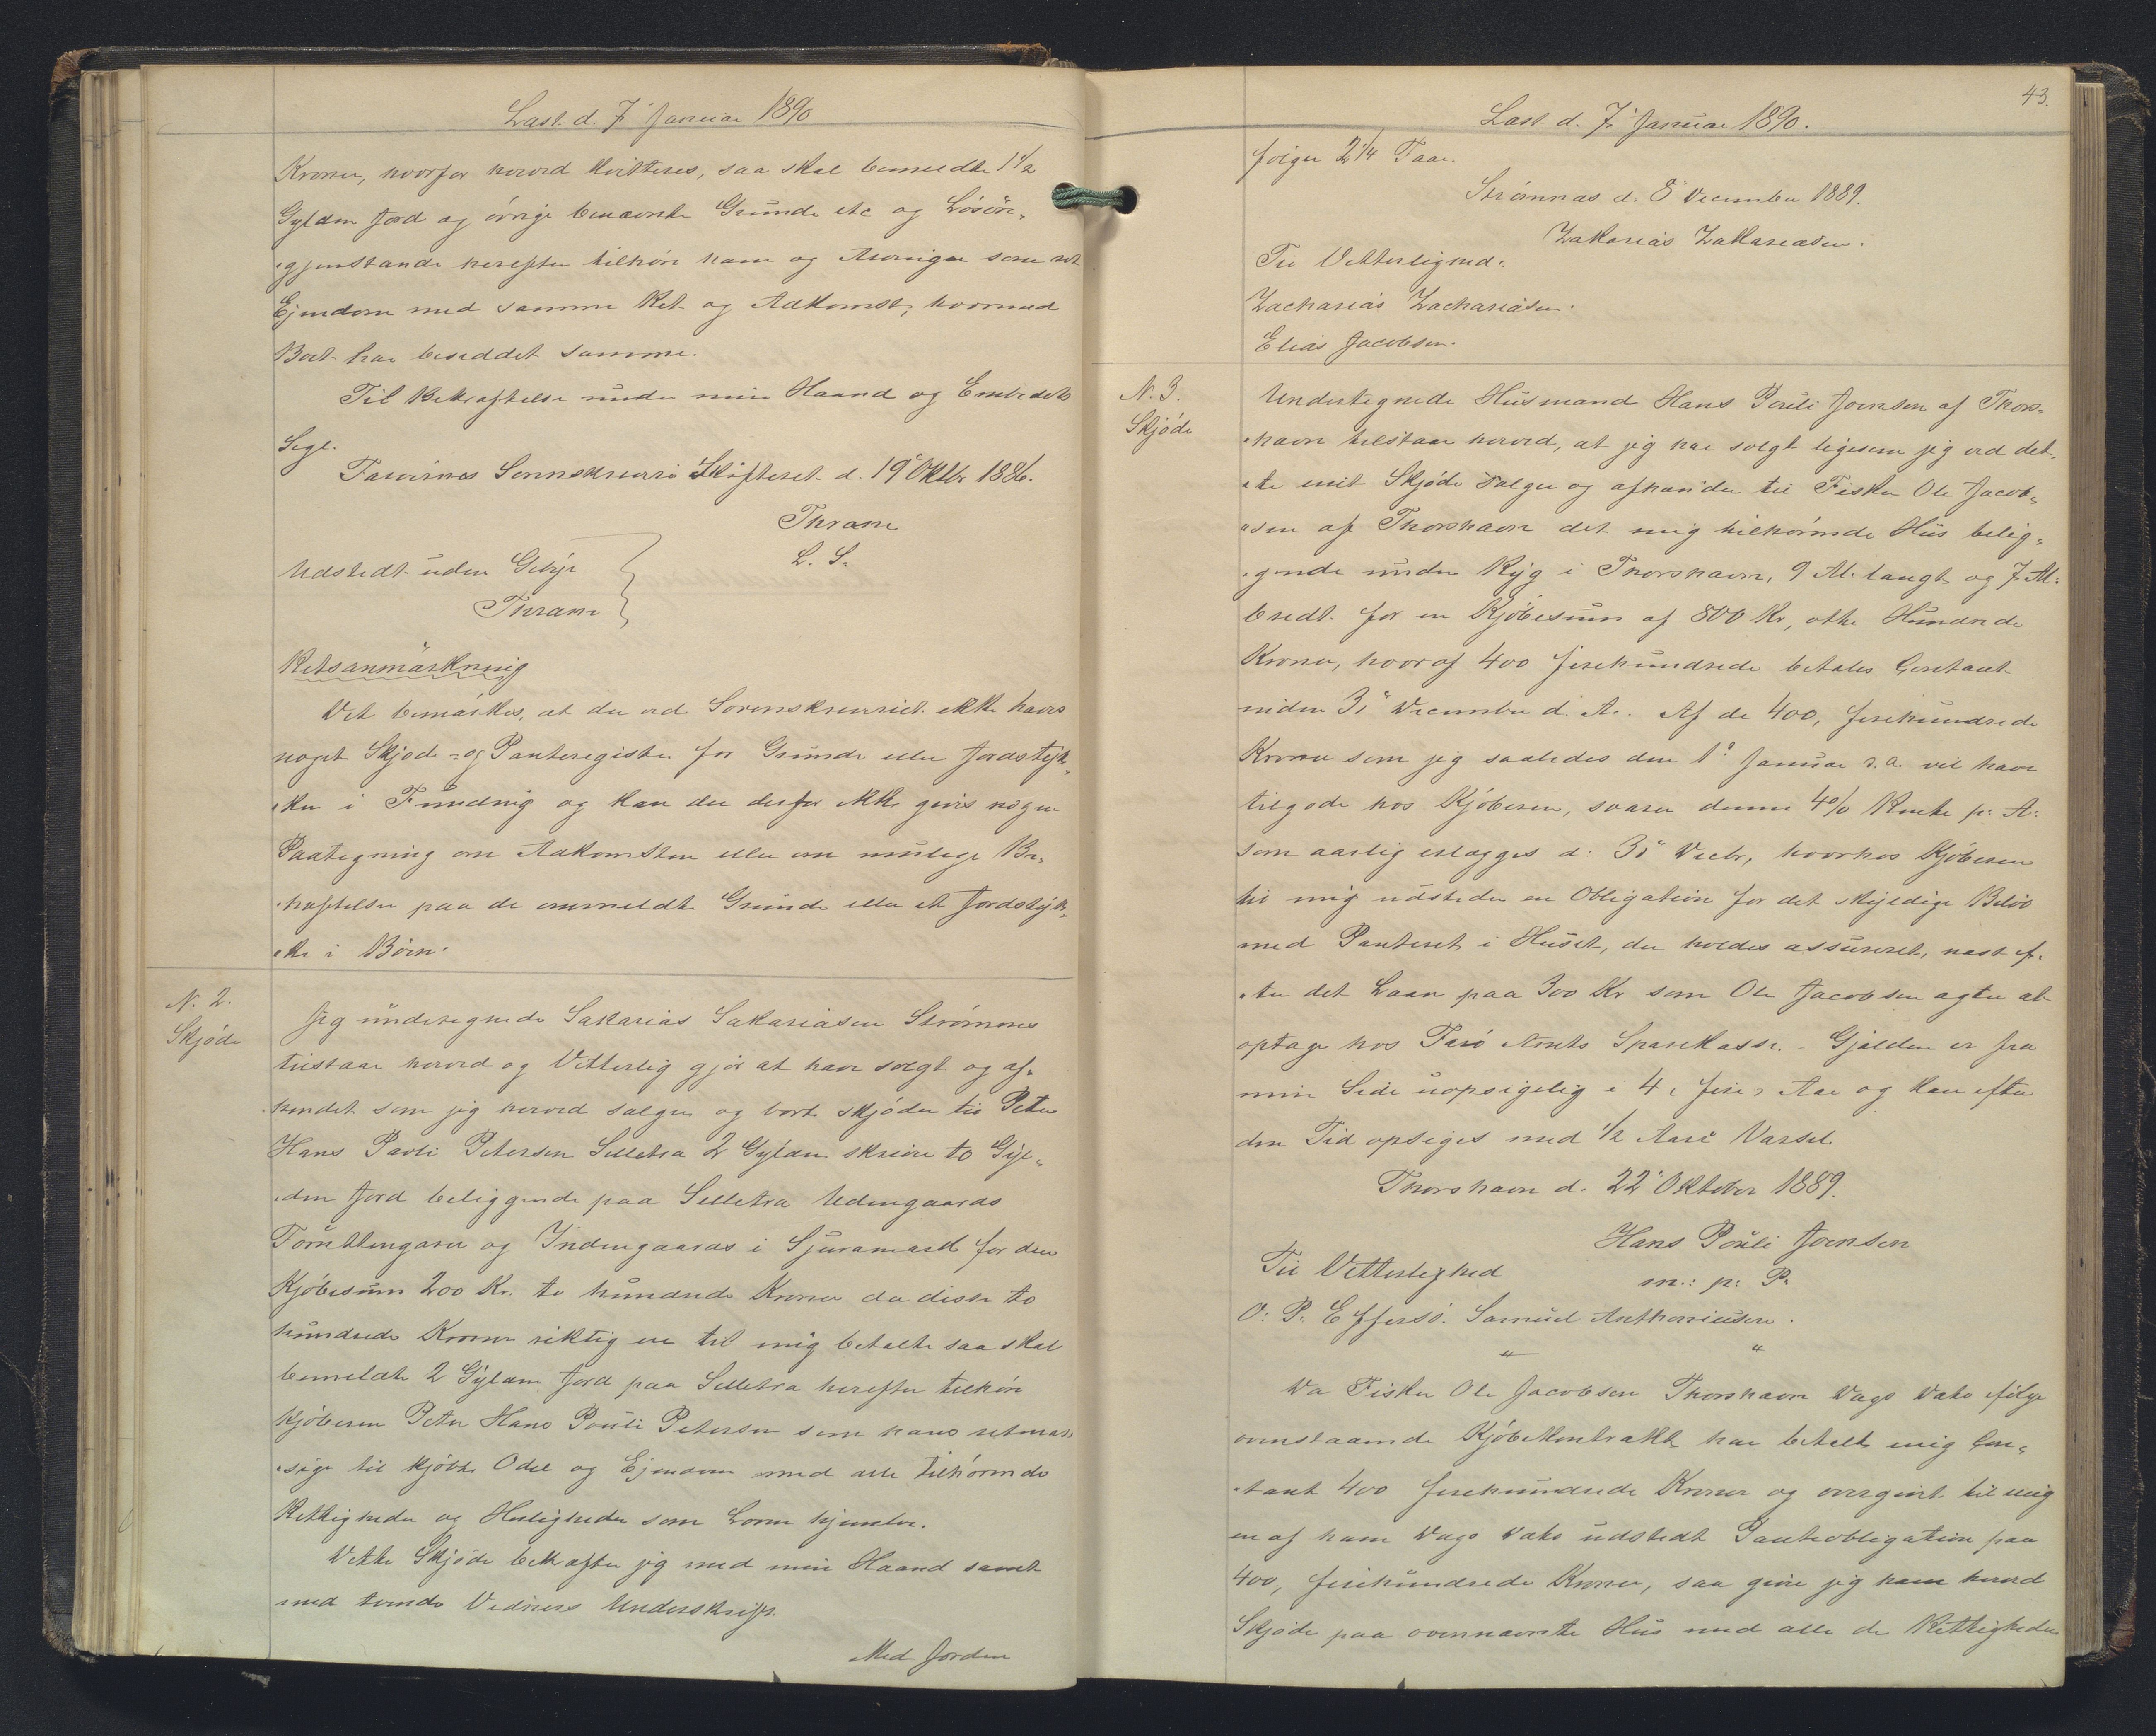 Læst d. 7' Januar 1890
Kroner, hvorfor herved kvitteres, saa skal bemeldte 1 1/2
Gylden Jord og øvrige benævnte Grunde etc og Løsøre,
"gjenstande herefter tilhøre ham og Arvinger som ret
Ejendom med samme Ret og Adkomst, hvormed
Boet har besiddet samme.
Til Bekræftelse under min Haand og Embedets
Segl.
Færøernes Sorenskriveri Skifteret d. 19' Oktbr 1886.
Thrane
L. S.
Udstedt uden Gebyr
Thrane
Retsanmærkning
Det bemærkes, at der ved Sorenskriveriet ikke haves
noget Skjøde- og Panteregister for Grunde eller Jordstyk,
"ker i Funding og kan der derfor ikke gives nogen
Paategning om Adkomsten eller om mulige Be,
"hæftelser paa de ommeldte Grunde eller et Jordstyk,
"ke i Bøen.
N. 2.
Skjøde
Jeg undertegnede Sakarias Sakariasen Strømnes
tilstaar herved og Vitterlig gjør at have solgt og af,
hændet som jeg herved sælger og bort skjøder til Peter
Hans Pauli Petersen Selletra 2 Gylden skriver to Gyl,
"den Jord beliggende paa Selletra Udengaards
og Indengaards i for den
Kjøbesum 200 Kr. to hundrede Kroner da disse to
hundrede Kroner riktig ere til mig betalte saa skal
bemeldte 2 Gylden Jord paa Selletra herefter tilhøre
Kjøberen Peter Hans Pouli Petersen som hans retmæs,
"sige til kjøbte Odel og Ejendom med alle tilhørende
Rettigheder og Herligheder som Loven hjemler.
Dette Skjøde bekræfter jeg med min Haand samt
med tvende Vidners Underskrift.
Med Jorden
43.
Læst d. 7' Januar 1890.
følger 2 1/4 Faar.
Strømnæs d. 8' December 1889.
Zakarias Zakariasen.
Til Vitterlighed:
Zacharias Zachariasen.
Elias Jacobsen.
N. 3.
Skjøde
Undertegnede Husmand Hans Pouli Joensen af Thors,
"havn tilstaar herved, at jeg har solgt ligesom jeg ved det,
"te mit Skjøde sælger og afhænder til Fisker Ole Jacob,
"sen af Thorshavn det mig tilhørende Hus belig,
"gende under Ryg i Thorshavn, 9 Al. langt og 7 Al:
bredt for en Kjøbesum af 800 Kr, otte Hundrede
Kroner, hvoraf 400 firehundrede betales Contant
inden 31' December d. A.. Af de 400, firehundrede
Kroner som jeg saaledes den 1' Januar n.a. vil have
tilgode hos Kjøberen, svarer denne 4% Rente p: A:
som aarlig erlægges d: 31' Decbr, hvorhos Kjøberen
til mig udsteder en Obligation for det skyldige Beløb
med Panteret i Huset, der holdes assureret, næst ef,
"ter det Laan paa 300 Kr som Ole Jacobsen agter at
optage hos Færø Amts Sparekasse. - Gjælden er fra
min Side uopsigelig i 4 (fire) Aar og kan efter
den Tid opsiges med 1/2 Aars Varsel.
Thorshavn d. 22' Oktober 1889.
Hans Pouli Joensen
m: p: P.
Til Vitterlighed
O: P. Effersø. Samuel Anthoniusen.
" "
Da Fisker Ole Jacobsen Thorshavn Dags Dato ifølge
ovenstaaende Kjøbekontrakt har betalt mig Con,
"tant 400 firehundrede Kroner og overgivet til mig
en af ham Dags Dato udstedt Panteobligation paa
400, firehundrede Kroner, saa giver jeg ham herved
Skjøde paa ovennævnte Hus med alle de Rettigheder